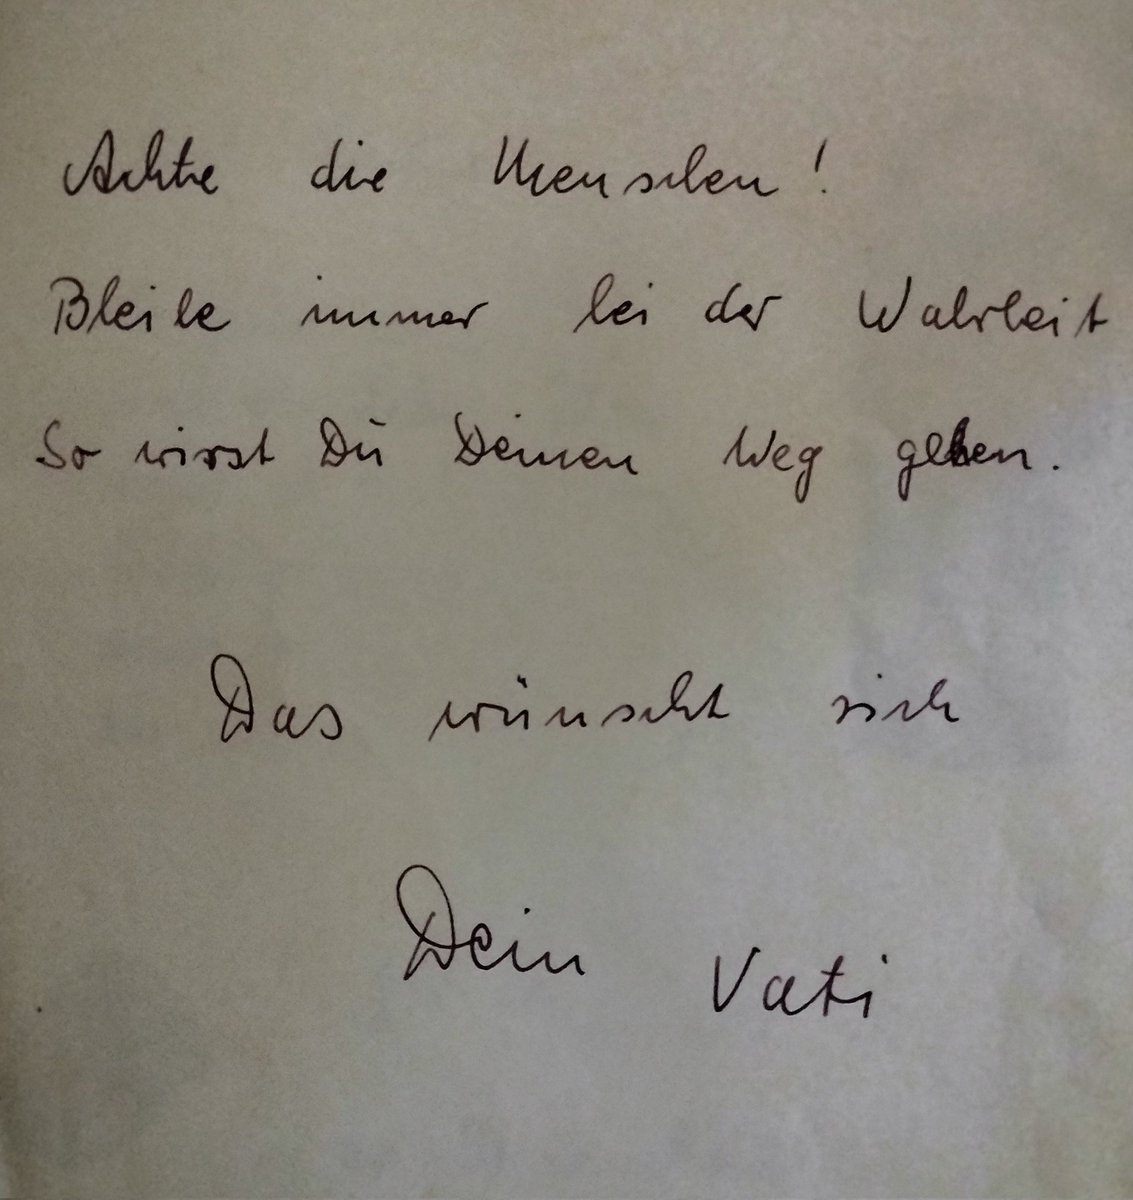 Achte die Menschen!
Bleibe immer bei der Wahrheit
So wirst Du Deinen Weg gehen.
Das wünscht sich
Dein Vati